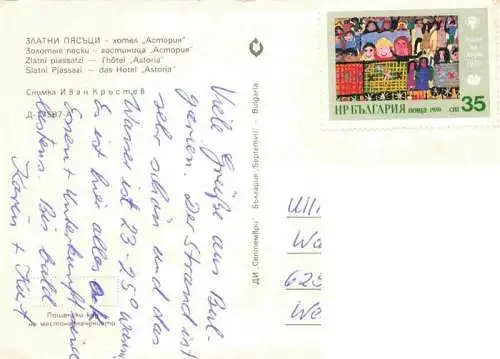 ЗЛАТНИ ПЯСЪЦИ — хотел „Астория"
Золотые пески — гостиница „Астория"
Zlatni piassatzi — l'hôtel „Astoria"
Slatni Pjassazi — das Hotel „Astoria"
Снимка Иван Кръстев
Viele Grüße aus Bul-
garien. Der Strand ist
sehr schön und das
Wasser ist 23-25° warm
Es ist hier alles o.k
Essen + Unterkunft sind
bestens. Bis bald
Karin + Kurt
Пощенски код
на местоназначението
ДИ „Септември" България „Septemvri" — Bulgaria
1979
НР БЪЛГАРИЯ поща 1979 ст 35
Ulli
Wa
625
We